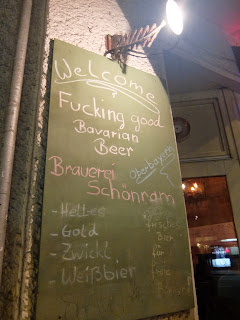 Welcome
Fucking good
Bavarian
Beer
Oberbayern
Brauerei
Schönram
- Helles
- Gold
- Zwickl
- Weißbier
Bier
für